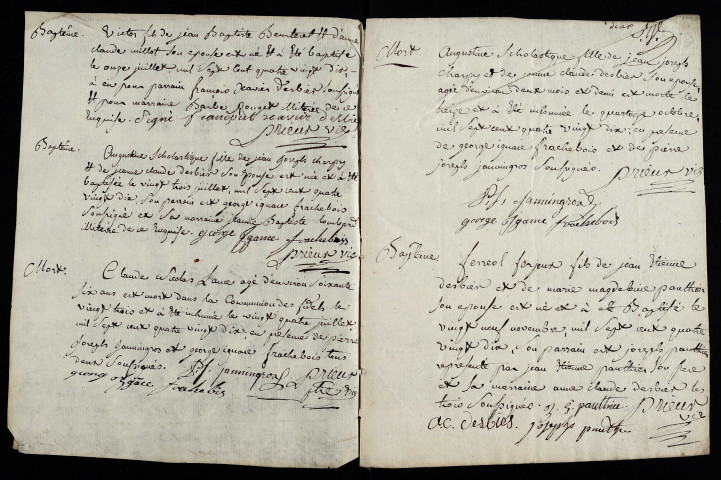 Baptême. Victor fils de jean Baptiste et d'anne
claude millot son epouse est né et à Eté baptisé
le onze juillet mil sept cent quatre vingt dix,
à eu pour parrain françois Xavier derbier soussigné
et pour marraine Barbe Rouget illiterée de ce
enquise. Signé françois xavier
prieur vic
Baptême. Augustine Scholastique fille de jean joseph charpy
et de jeanne claude derbier son epouse est née et a été
baptisée le vingt trois juillet, mil sept cent quatre
vingt dix, son parrain est george ignace frachebois
soussigné et sa marraine jeanne Baptiste
illiterée de ce enquise. george Ignance frachebois
prieur vic
Mort. Claude Nicolas agé d'environ soixante
six ans est mort dans la Communion des fidels le
vingt trois et à été inhumé le vingt quatre juillet
mil sept cent quatre vingt dix: en présence de pierre
joseph janningros et george ignace frachebois tous
deux soussignés. P. j. janningros prieur
george ignace frachebois vic
deux
Mort. Augustine Scholastique fille de jean joseph
charpy et de jeanne claude derbier son epouse
agée d'environ deux mois et demi est morte le
treize et à été inhumée le quatorze octobre,
mil sept cent quatre vingt dix: en présence
de george ignace frachebois et de pierre
joseph janningros soussignés. prieur vic
P. j. jamningros
george Ignance frachebois
Baptême. ferreol fils de jean Etienne
derbier et de marie magdeleine panthier
son epouse est né et à été Baptisé le
vingt neuf novembre, mil sept cent quatre
vingt dix; son parrain est joseph panthier
représenté par jean Etienne panthier son frere
et sa marraine anne claude derbier les
trois soussignés. panthier prieur
vic
a.c. desbies. joseph panthier